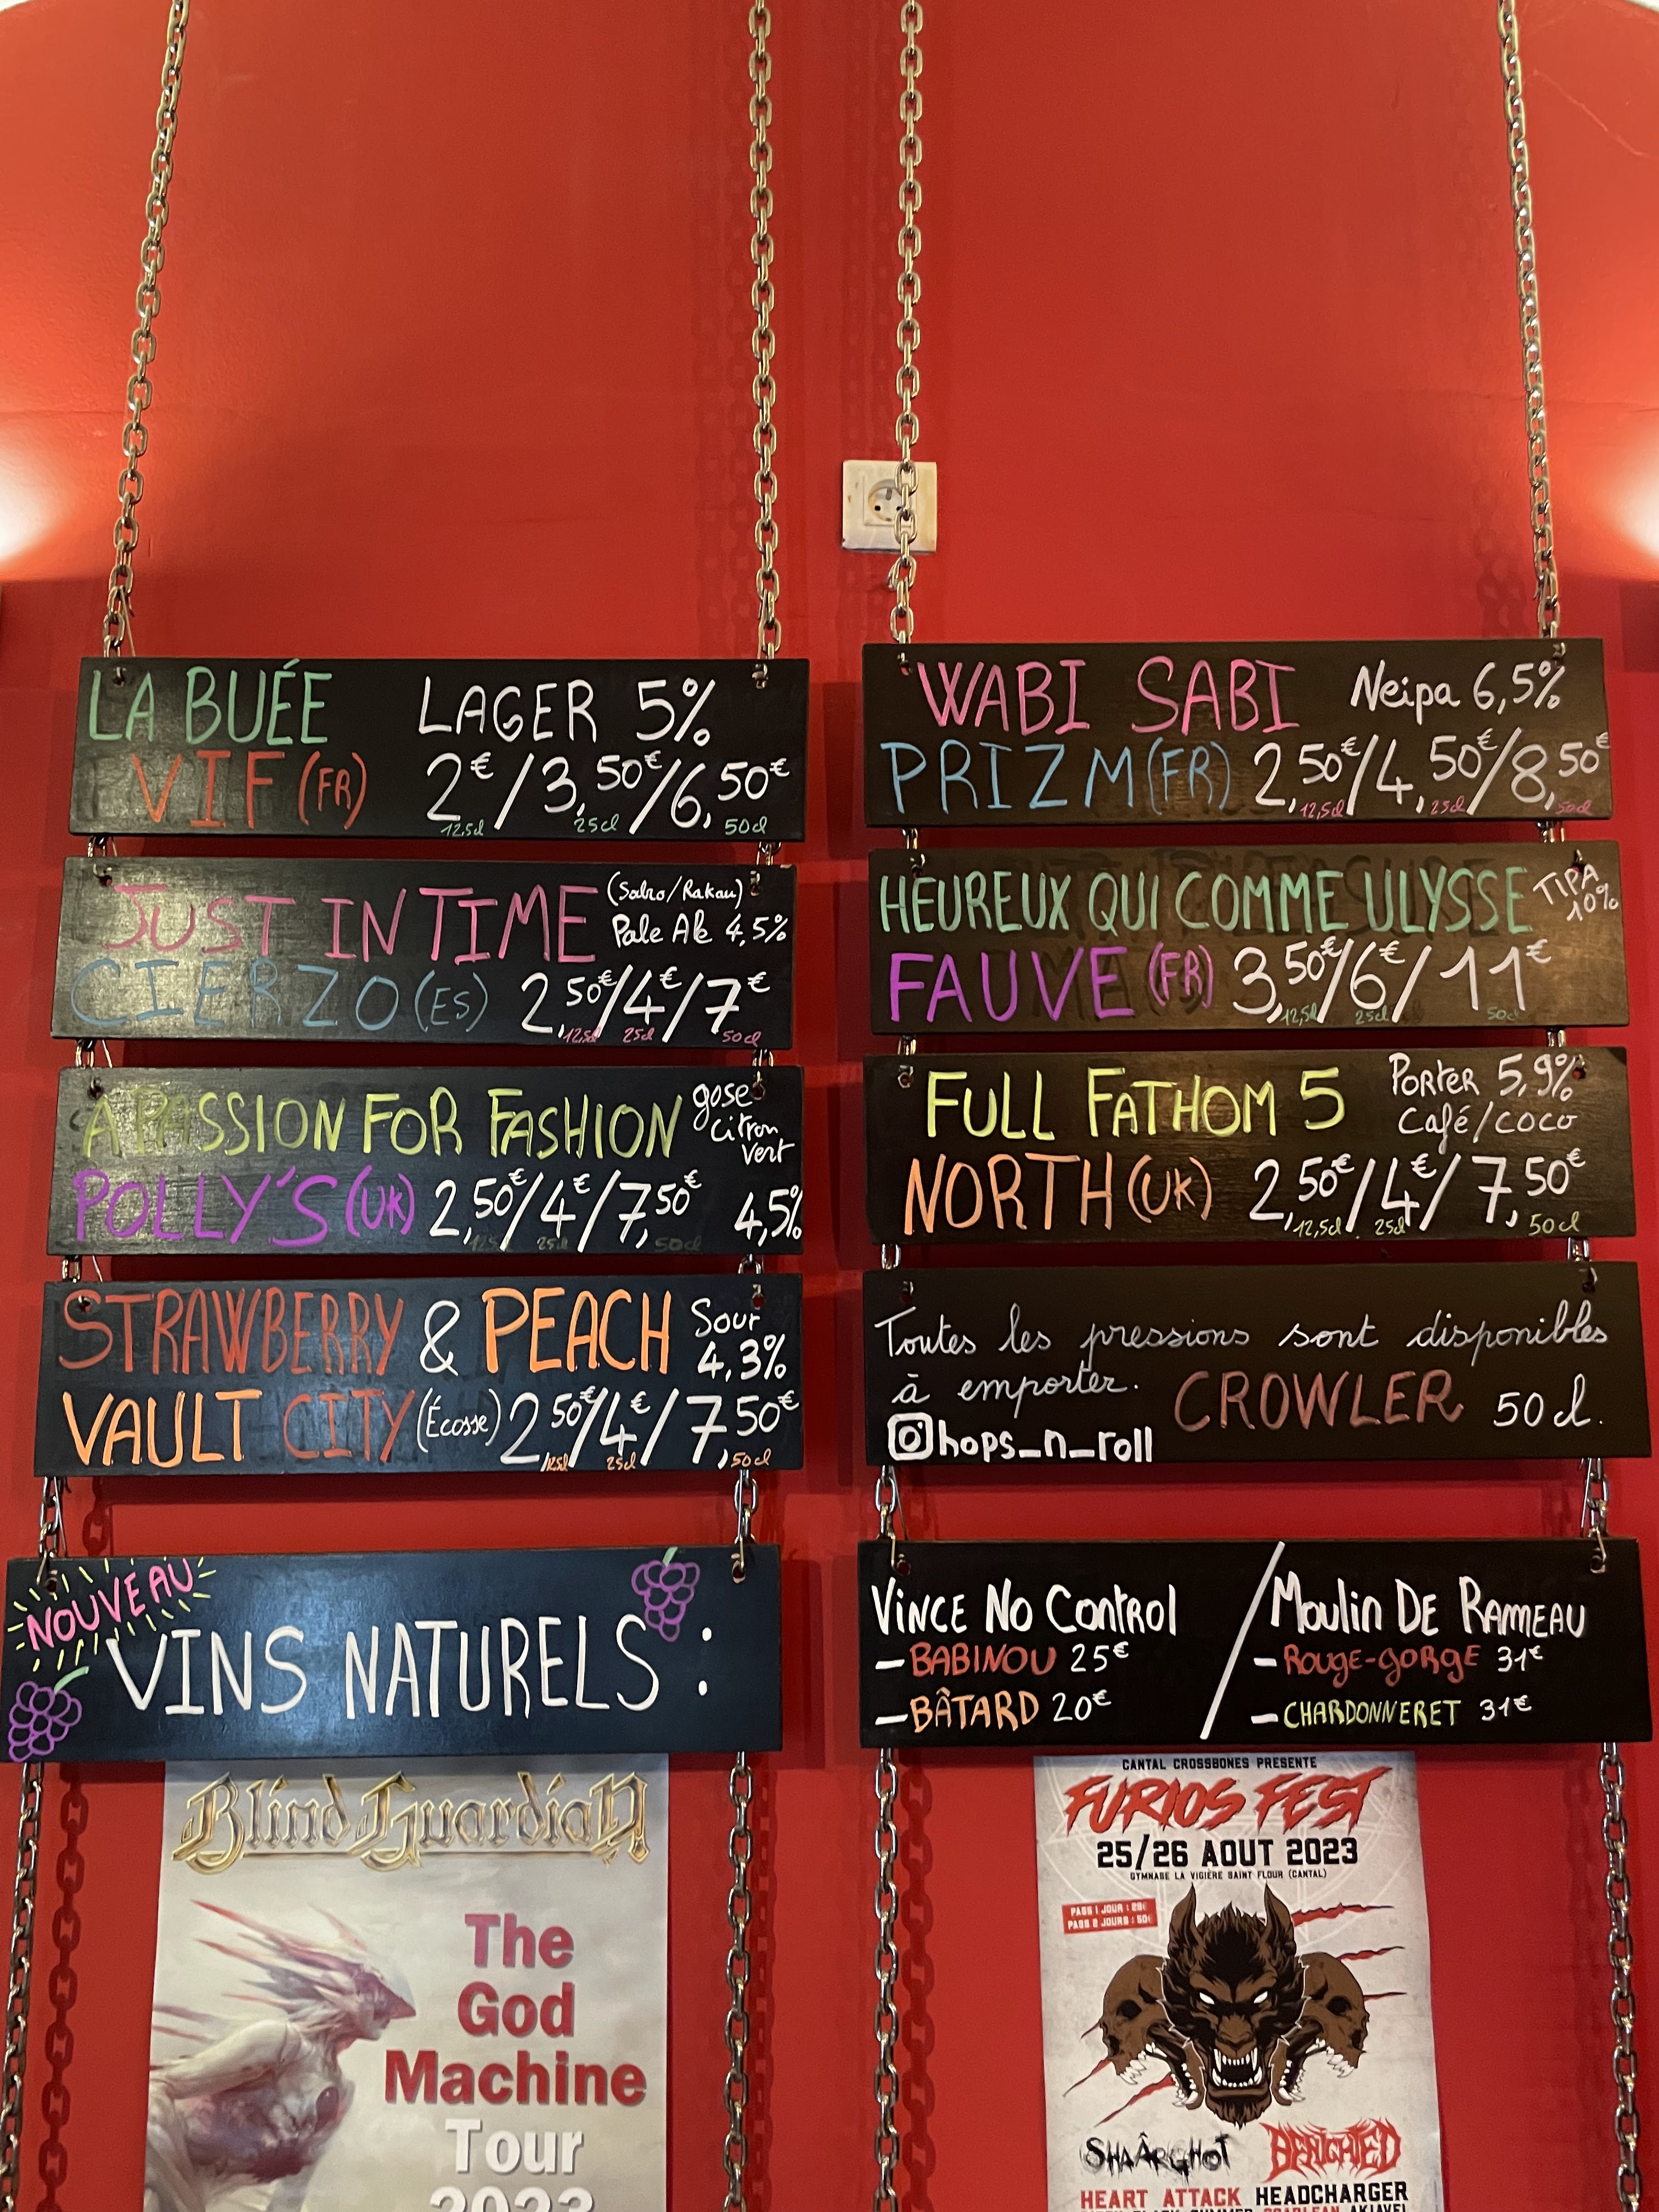 LA BUÉE LAGER 5%
VIF (FR) 2€/3,50€/6,50€
12,5cl 25cl 50cl
JUST IN TIME (Sabro/Rakau)
Pale Ale 4,5%
CIERZO (ES) 2,50€/4€/7€
12,5cl 25cl 50cl
A PASSION FOR FASHION gose
citron
vert
POLLY'S (UK) 2,50€/4€/7,50€ 4,5%
12,5cl 25cl 50cl
STRAWBERRY & PEACH Sour
4,3%
VAULT CITY (Écosse) 2,50€/4€/7,50€
12,5cl 25cl 50cl
NOUVEAU
VINS NATURELS :
WABI SABI Neipa 6,5%
PRIZM (FR) 2,50€/4,50€/8,50€
12,5cl 25cl 50cl
HEUREUX QUI COMME ULYSSE TIPA
10%
FAUVE (FR) 3,50€/6€/11€
12,5cl 25cl 50cl
FULL FATHOM 5 PORTER 5,9%
Café/coco
NORTH (UK) 2,50€/4€/7,50€
12,5cl 25cl 50cl
Toutes les pressions sont disponibles
à emporter. CROWLER 50cl.
hops_n_roll
VINCE NO CONTROL / MOULIN DE RAMEAU
- BABINOU 25€ - ROUGE-GORGE 31€
- BÂTARD 20€ - CHARDONNERET 31€
Blind Guardian
The
God
Machine
Tour
2023
CANTAL CROSSBONES PRESENTE
FURIOS FEST
25/26 AOUT 2023
GYMNASE LA VIGIÈRE SAINT FLOUR (CANTAL)
PASS 1 JOUR : 29€
PASS 2 JOURS : 50€
SHAÂRGHOT BENIGHTED
HEART ATTACK HEADCHARGER